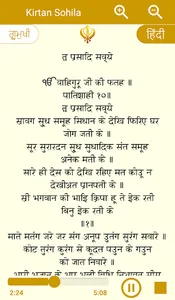 Kirtan Sohila
ਗੁਰਮੁਖੀ
हिंदी
त्व प्रसादि सव्ये
ੴ वाहिगुरू जी की फतह ॥
पातिशाही १०॥
त्व प्रसादि सवये
स्रावग सुध समूह सिधान के देखि फिरिओ घर
जोग जती के ॥
सूर सुरारदन सुध सुधादिक संत समूह
अनेक मती के ॥
सारे ही देस को देखि रहिओ मत कोउू न
देखीअत प्रानपती के ॥
स्री भगवान की भाइ क्रिपा हू ते एक रती
बिनु एक रती के
॥१॥
माते मतंग जरे जर संग अनूप उतंग सुरंग सवारे ॥
कोट तुरंग कुरंग से कूदत पउन के गउन
को जात निवारे ॥
2:24
5:08